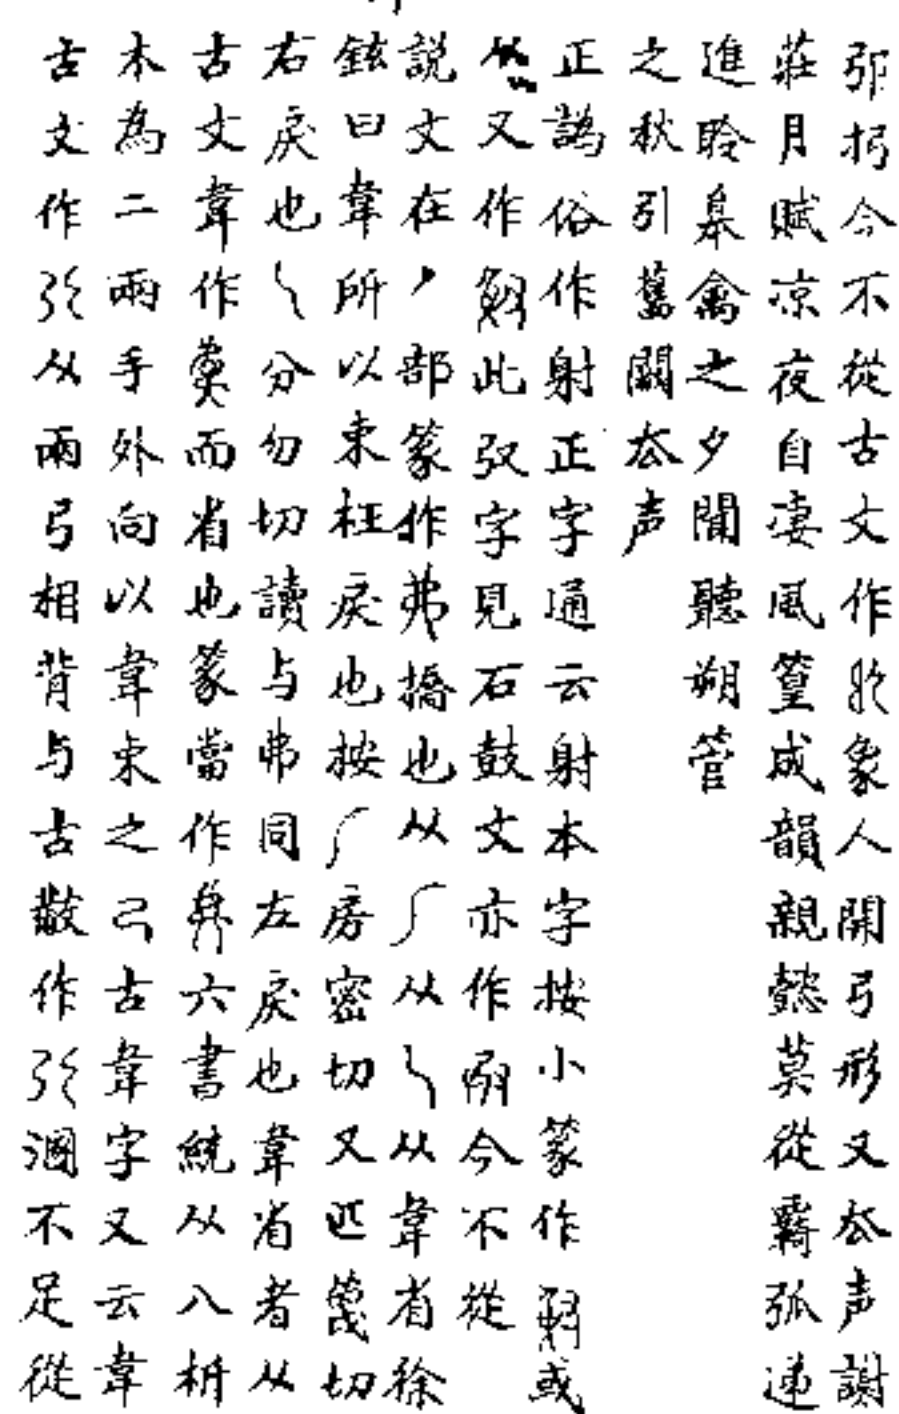 今不從古文作象人開弓形又厺声謝
莊月賦凉夜自凄風篁成韻親懿莫從覊孤遞
進聆皋禽之夕聞聽朔管
之秋引舊闕厺声
正譌俗作射正字通云射本字按小篆作或
从又作此字見石鼓文亦作今不從
說文在丿部篆作弗撟也从丿从乀从韋省徐
鉉曰韋所以束枉戾也按丿房密切又匹蔑切
右戾也乀分勿切讀与弗同左戾也韋省者从
古文韋作而省也篆當作六書統从八析
木為二兩手外向以韋束之己古韋字又云韋
古文作从兩弓相背与古散作溷不足從